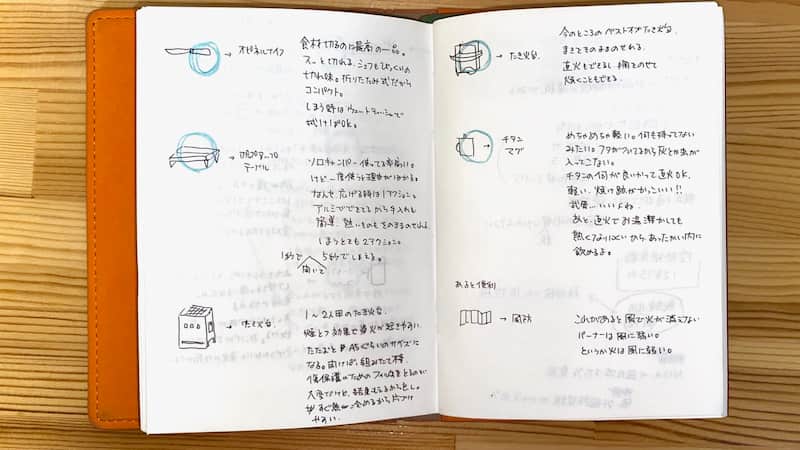 オピネルナイフ
食材切るのに最高の一品。
スーと切れる。シェフもびっくりの
切れ味。折りたたみ式だから
コンパクト。
しまう時はウェットティッシュで
拭けばOK。
ポップアップ
テーブル
ソロキャンパー使ってる率高い。
けど一度使うと理由がわかる。
なんせ、広げる時は1アクション。
アルミでできてるから手入れも
簡単、熱いものものせれる
しまうとても2アクション。
1秒で
開いて
5秒でしまえる。
たき火台
1〜2人用のたき火台。
煙とつ効果で着火が起きやすい
たたむと A5ぐらいのサイズに
なる。
大変だけど、
すぐ熱 冷めるから片づけ
やすい。
たき火台
今のところのベストオブたき火台。
まきてそのままのせれる。
直火もできるし、網のせて
焼くこともできる。
チタン
マグ
めちゃめちゃ軽い。何も持ってない
みたい。フタがついてるから灰とか虫が
入ってこない。
チタンの何が良いかって直火OK、
軽い、焼け跡がかっこいい!!
武骨…いいよね。
あと、直火でお湯沸かしても
熱くなりにくいから、あったかい内に
飲めるよ。
あると便利
風防
これがあると風で火が消えない
バーナーは風に弱い。
というか火は風に弱い。